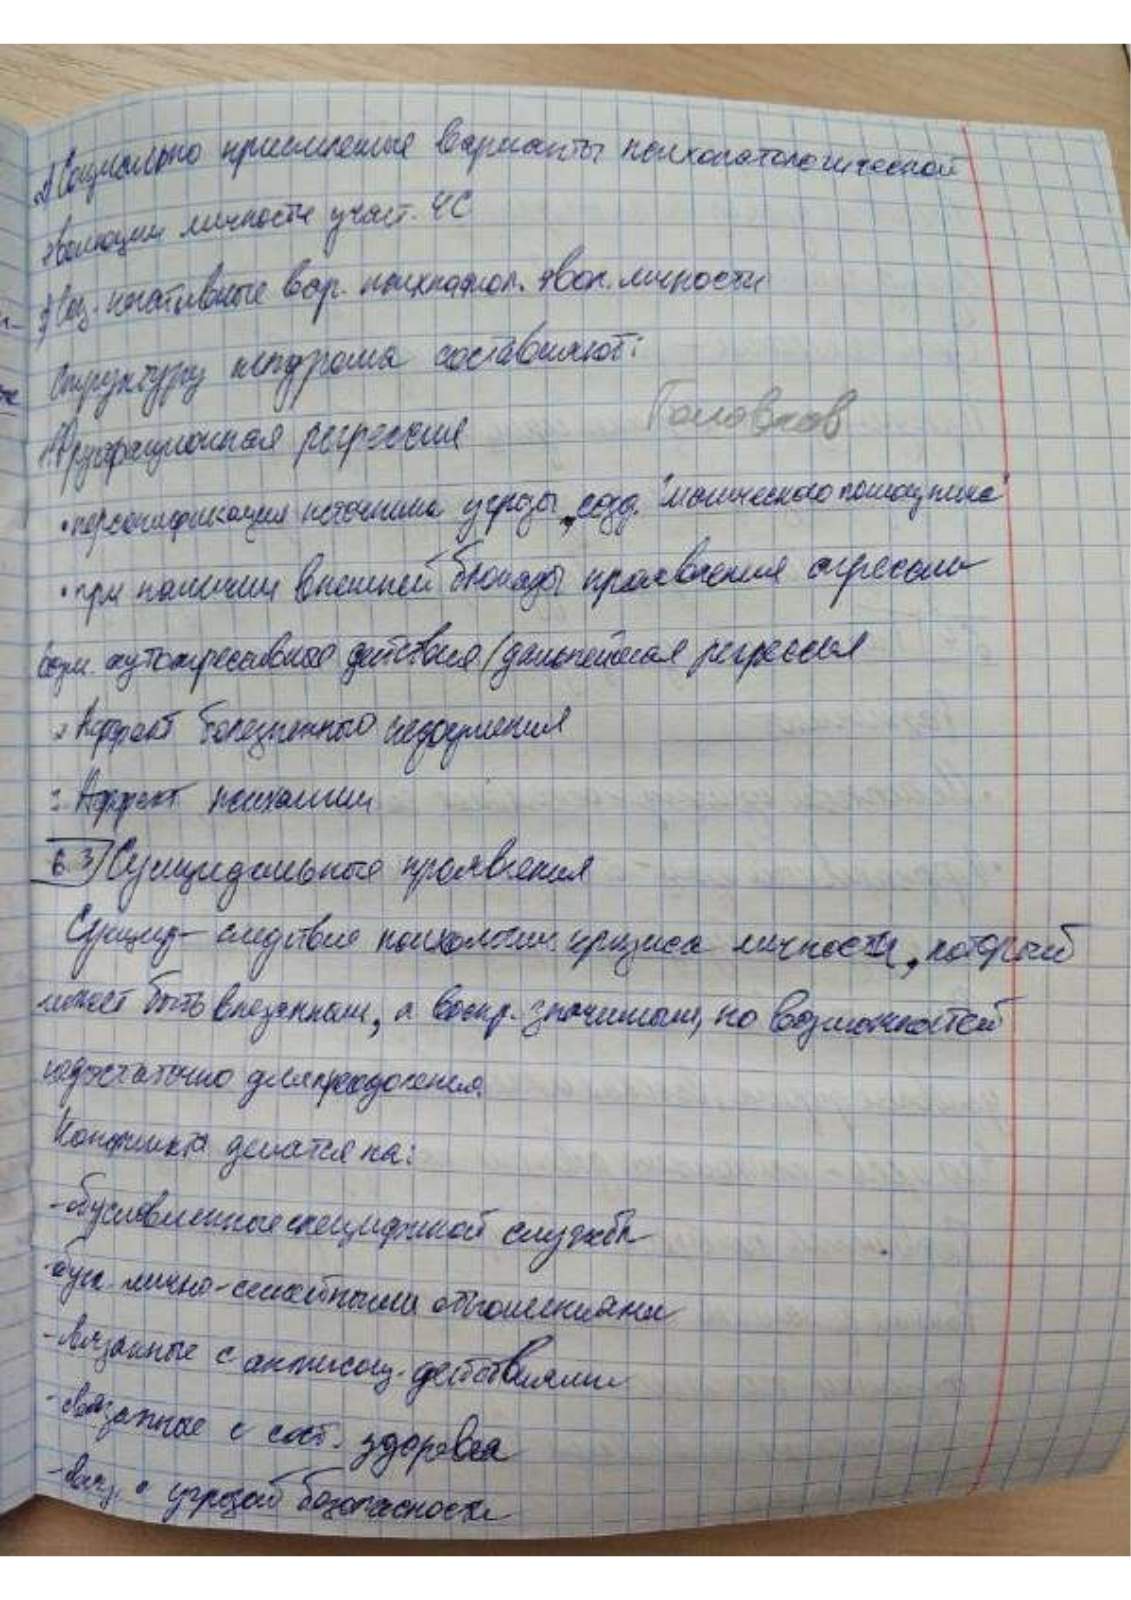 2) Социально приемлемые варианты психопатологической
эволюции личности участ. ЧС
3) Соц. негативные вар. психпатол. эвол. личности
Структуру синдрома составляют:
Головков
1) Фрустрационная регрессия
• персонификация источника угрозы, созд. "мысленного
• при наличии внешней блокады проявления агрессии
возм. аутоагрессивные действия (дальнейшая регрессия
2. Аффект болезненного недоумения
3. Аффект психалгии
6.3 Суицидальные проявления
Суицид – следствие психологич. кризиса личности, который
может быть внезапным, а воспр. значимым, но возможностей
недостаточно для преодоления.
Конфликты делятся на:
- обусловленные спецификой службы
- обусл. лично-семейными отношениями
- связанные с антисоц. действиями
- связанные с сост. здоровья
- связ. с угрозой безопасности